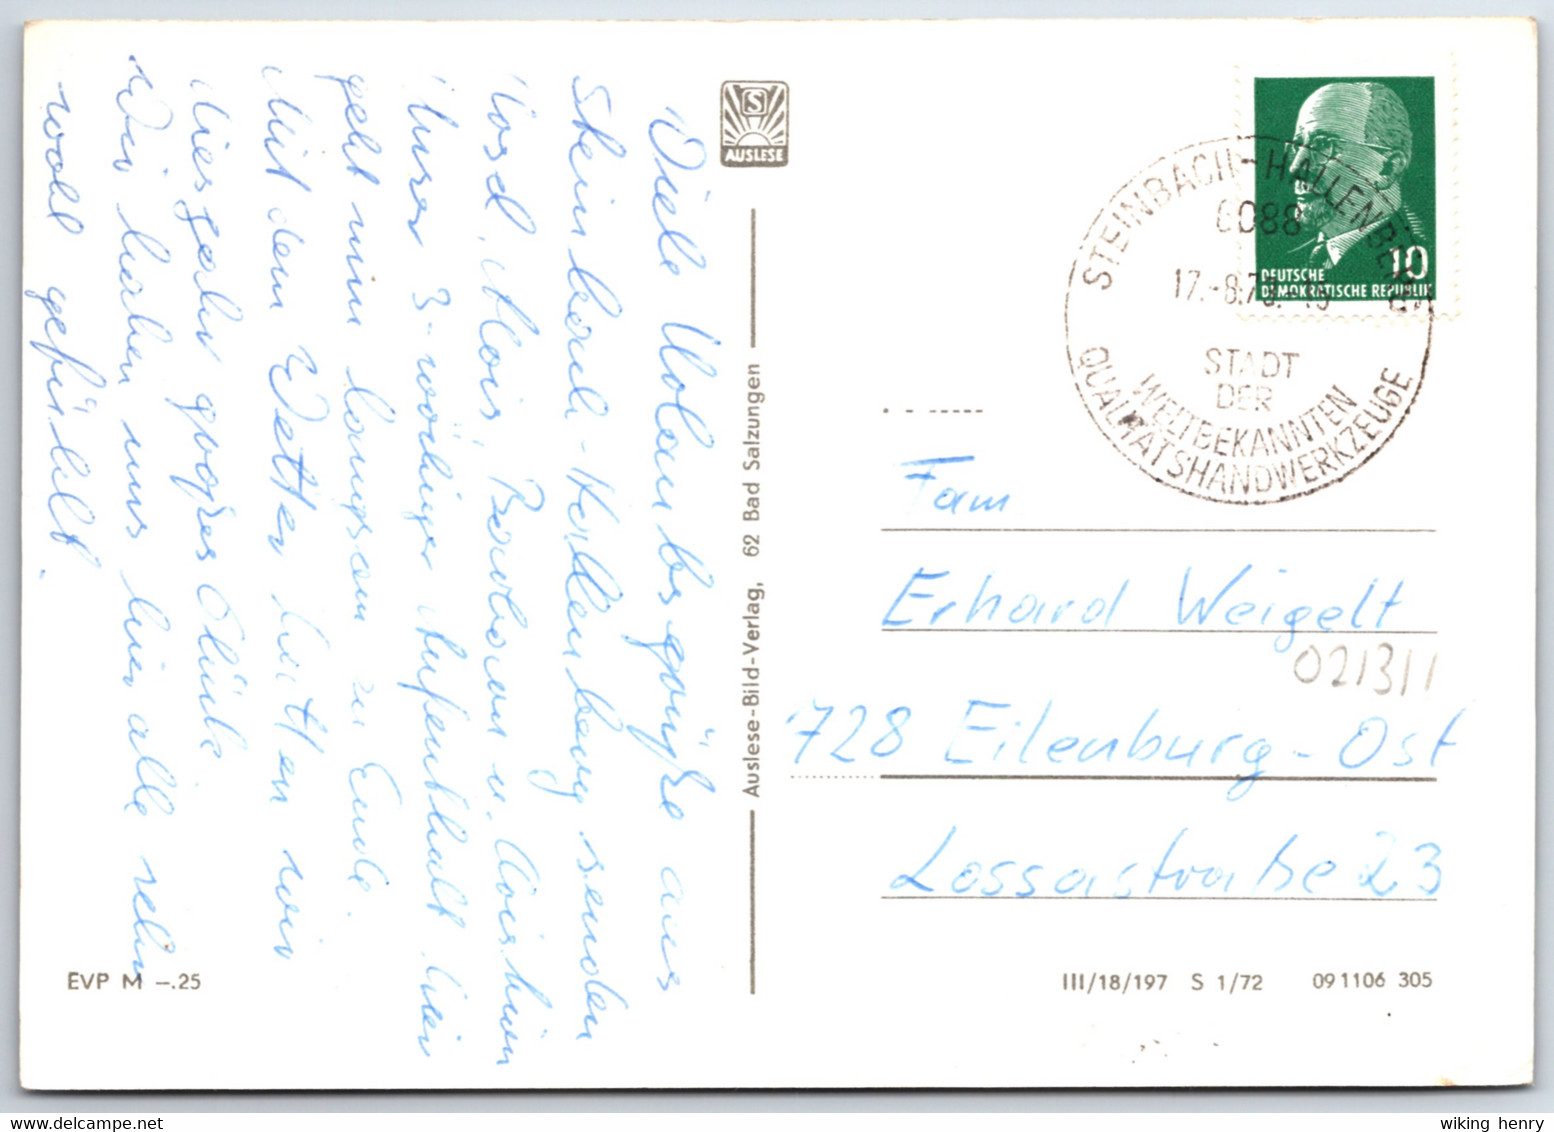 Viele Urlaubsgrüße aus
Steinbach-Hallenberg senden
Alois, Barbara u.
Unser 3-wöchiger Aufenthalt hier
geht nun langsam zu Ende.
Mit dem Wetter hatten wir
diesesJahr großes Glück.
Wir haben uns hier alle sehr
wohl gefühlt.
S
AUSLESE
Auslese-Bild-Verlag, 62 Bad Salzungen
EVP M –.25
STEINBACH-HALLENBERG
6088
DEUTSCHE
DEMOKRATISCHE REPUBLIK
10
STADT
DER
WELTBEKANNTEN
QUALITÄTSHANDWERKZEUGE
Fam
Erhard Weigelt
021311
728 Eilenburg-Ost
Lossastraße 23
III/18/197 S 1/72 09 11 06 305
wiking henry